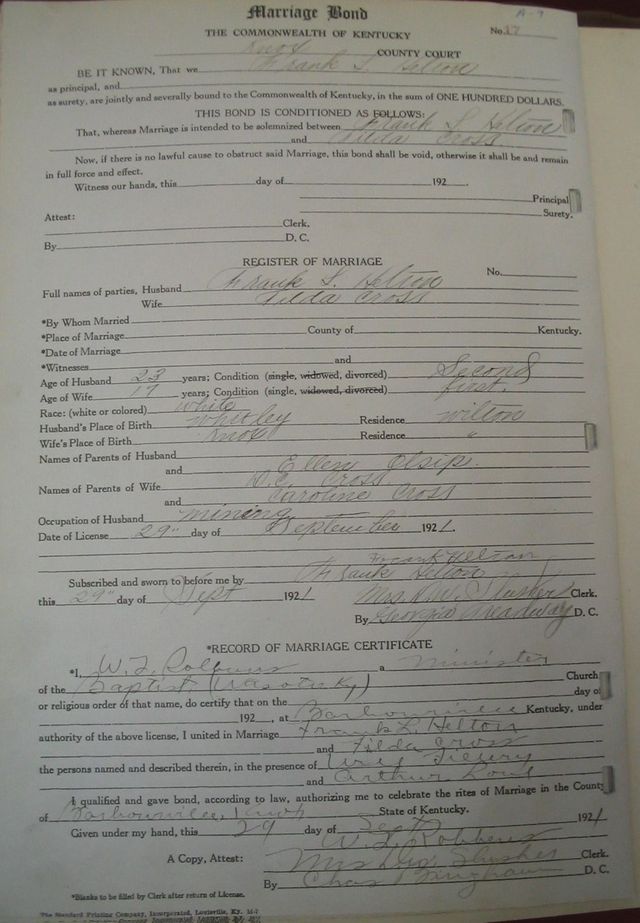 A-7
Marriage Bond
THE COMMONWEALTH OF KENTUCKY
No. 17
Knox COUNTY COURT
BE IT KNOWN, That we Frank S. Helton
as principal, and
as surety, are jointly and severally bound to the Commonwealth of Kentucky, in the sum of ONE HUNDRED DOLLARS.
THIS BOND IS CONDITIONED AS FOLLOWS:
That, whereas Marriage is intended to be solemnized between Frank S Helton
and Tilda Cross
Now, if there is no lawful cause to obstruct said Marriage, this bond shall be void, otherwise it shall be and remain
in full force and effect.
Witness our hands, this day of 192 .
Principal
Surety.
Attest:
Clerk.
By D. C.
REGISTER OF MARRIAGE
No.
Full names of parties, Husband Frank S. Helton
Wife Tilda Cross
*By Whom Married
*Place of Marriage County of Kentucky.
*Date of Marriage
*Witnesses and
Age of Husband 23 years; Condition (single, widowed, divorced) Second
Age of Wife 17 years; Condition (single, widowed, divorced) first.
Race: (white or colored) white
Husband's Place of Birth Whitley Residence Wilton
Wife's Place of Birth Knox Residence "
Names of Parents of Husband
and Ellen
Names of Parents of Wife Cross
and Caroline Cross
Occupation of Husband mining
Date of License 29" day of September 1921.
Frank Helton
Subscribed and sworn to before me by Frank Helton
this 29" day of Sept 1921 Mrs. Slusher Clerk.
By Georgia Treadway D. C.
*RECORD OF MARRIAGE CERTIFICATE
*I, W. L. a Minister
of the Baptist Church
or religious order of that name, do certify that on the day of
192 , at Barbourville Kentucky, under
authority of the above license, I united in Marriage Frank L. Helton
and Tilda Cross
the persons named and described therein, in the presence of
and Arthur
I qualified and gave bond, according to law, authorizing me to celebrate the rites of Marriage in the County
of Barbourville, Knox State of Kentucky.
Given under my hand, this 29 day of Sept 1921
W. L. Robbins
A Copy, Attest: Mrs. Slusher Clerk.
By Chas D. C.
*Blanks to be filled by Clerk after return of License.
The Standard Printing Company, Incorporated, Louisville, Ky.